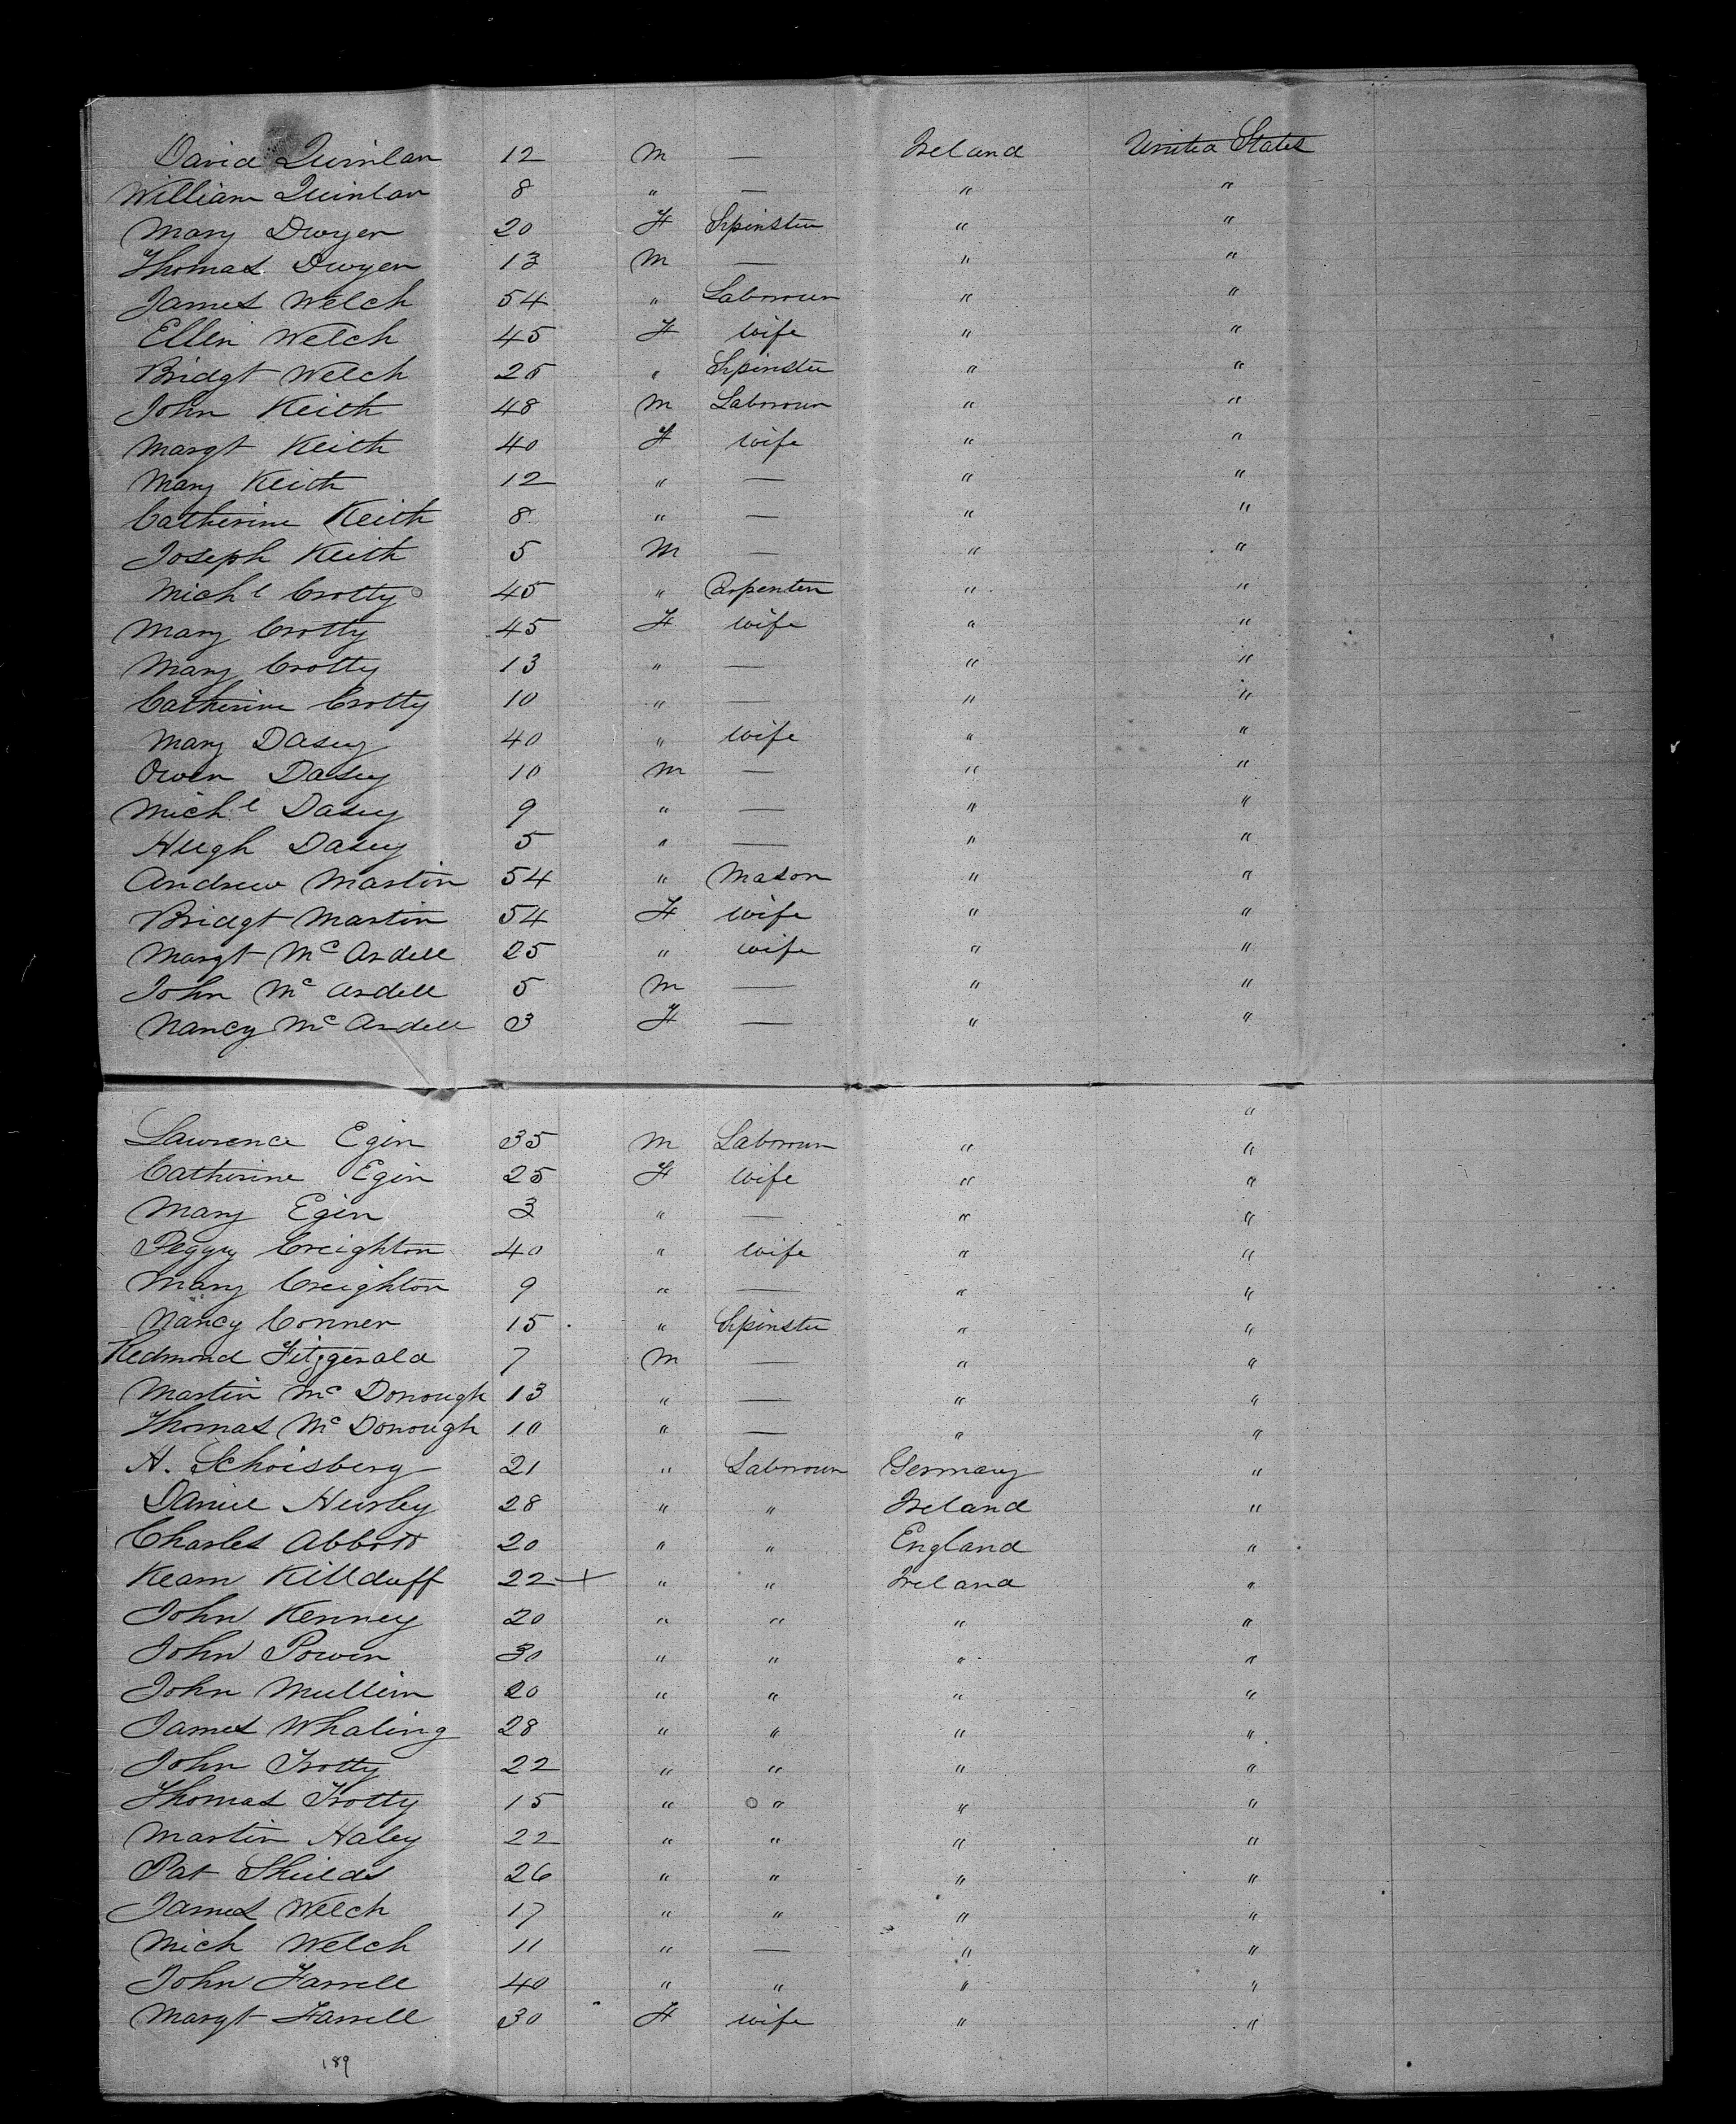 David Quinlan 12 M — Ireland United States
William Quinlan 8 " — " "
Mary Dwyer 20 F Spinster " "
Thomas Dwyer 13 M — " "
James Welch 54 " Labourer " "
Ellen Welch 45 F Wife " "
Bridgt Welch 25 " Spinster " "
John Keith 48 M Labourer " "
Margt Keith 40 F Wife " "
Mary Keith 12 " — " "
Catherine Keith 8 " — " "
Joseph Keith 5 M — " "
Michl Crotty 45 " Carpenter " "
Mary Crotty 45 F Wife " "
Mary Crotty 13 " — " "
Catherine Crotty 10 " — " "
Mary Dasey 40 " Wife " "
Owen Dasey 10 M — " "
Michl Dasey 9 " — " "
Hugh Dasey 5 " — " "
Andrew Martin 54 " Mason " "
Bridgt Martin 54 F Wife " "
Margt Mc Ardell 25 " Wife " "
John Mc Ardell 5 M — " "
Nancy Mc Ardell 3 F — " "
"
Lawrence Egin 35 M Labourer " "
Catherine Egin 25 F Wife " "
Mary Egin 3 " — " "
Peggy Creighton 40 " Wife " "
Mary Creighton 9 " — " "
Nancy Conner 15 " Spinster " "
Redmond Fitzgerald 7 M — " "
Martin Mc Donough 13 " — " "
Thomas Mc Donough 10 " — " "
H. Schoisberg 21 " Labourer Germany "
Daniel Hurley 28 " " Ireland "
Charles Abbott 20 " " England "
Kearn Killduff 22 + " " Ireland "
John Kenney 20 " " " "
John Power 30 " " " "
John Mullin 20 " " " "
James Whaling 28 " " " "
John Trotty 22 " " " "
Thomas Trotty 15 " " " "
Martin Haley 22 " " " "
Pat Shields 26 " " " "
James Welch 17 " " " "
Mich Welch 11 " — " "
John Farrell 40 " " " "
Margt Farrell 30 F Wife " "
189